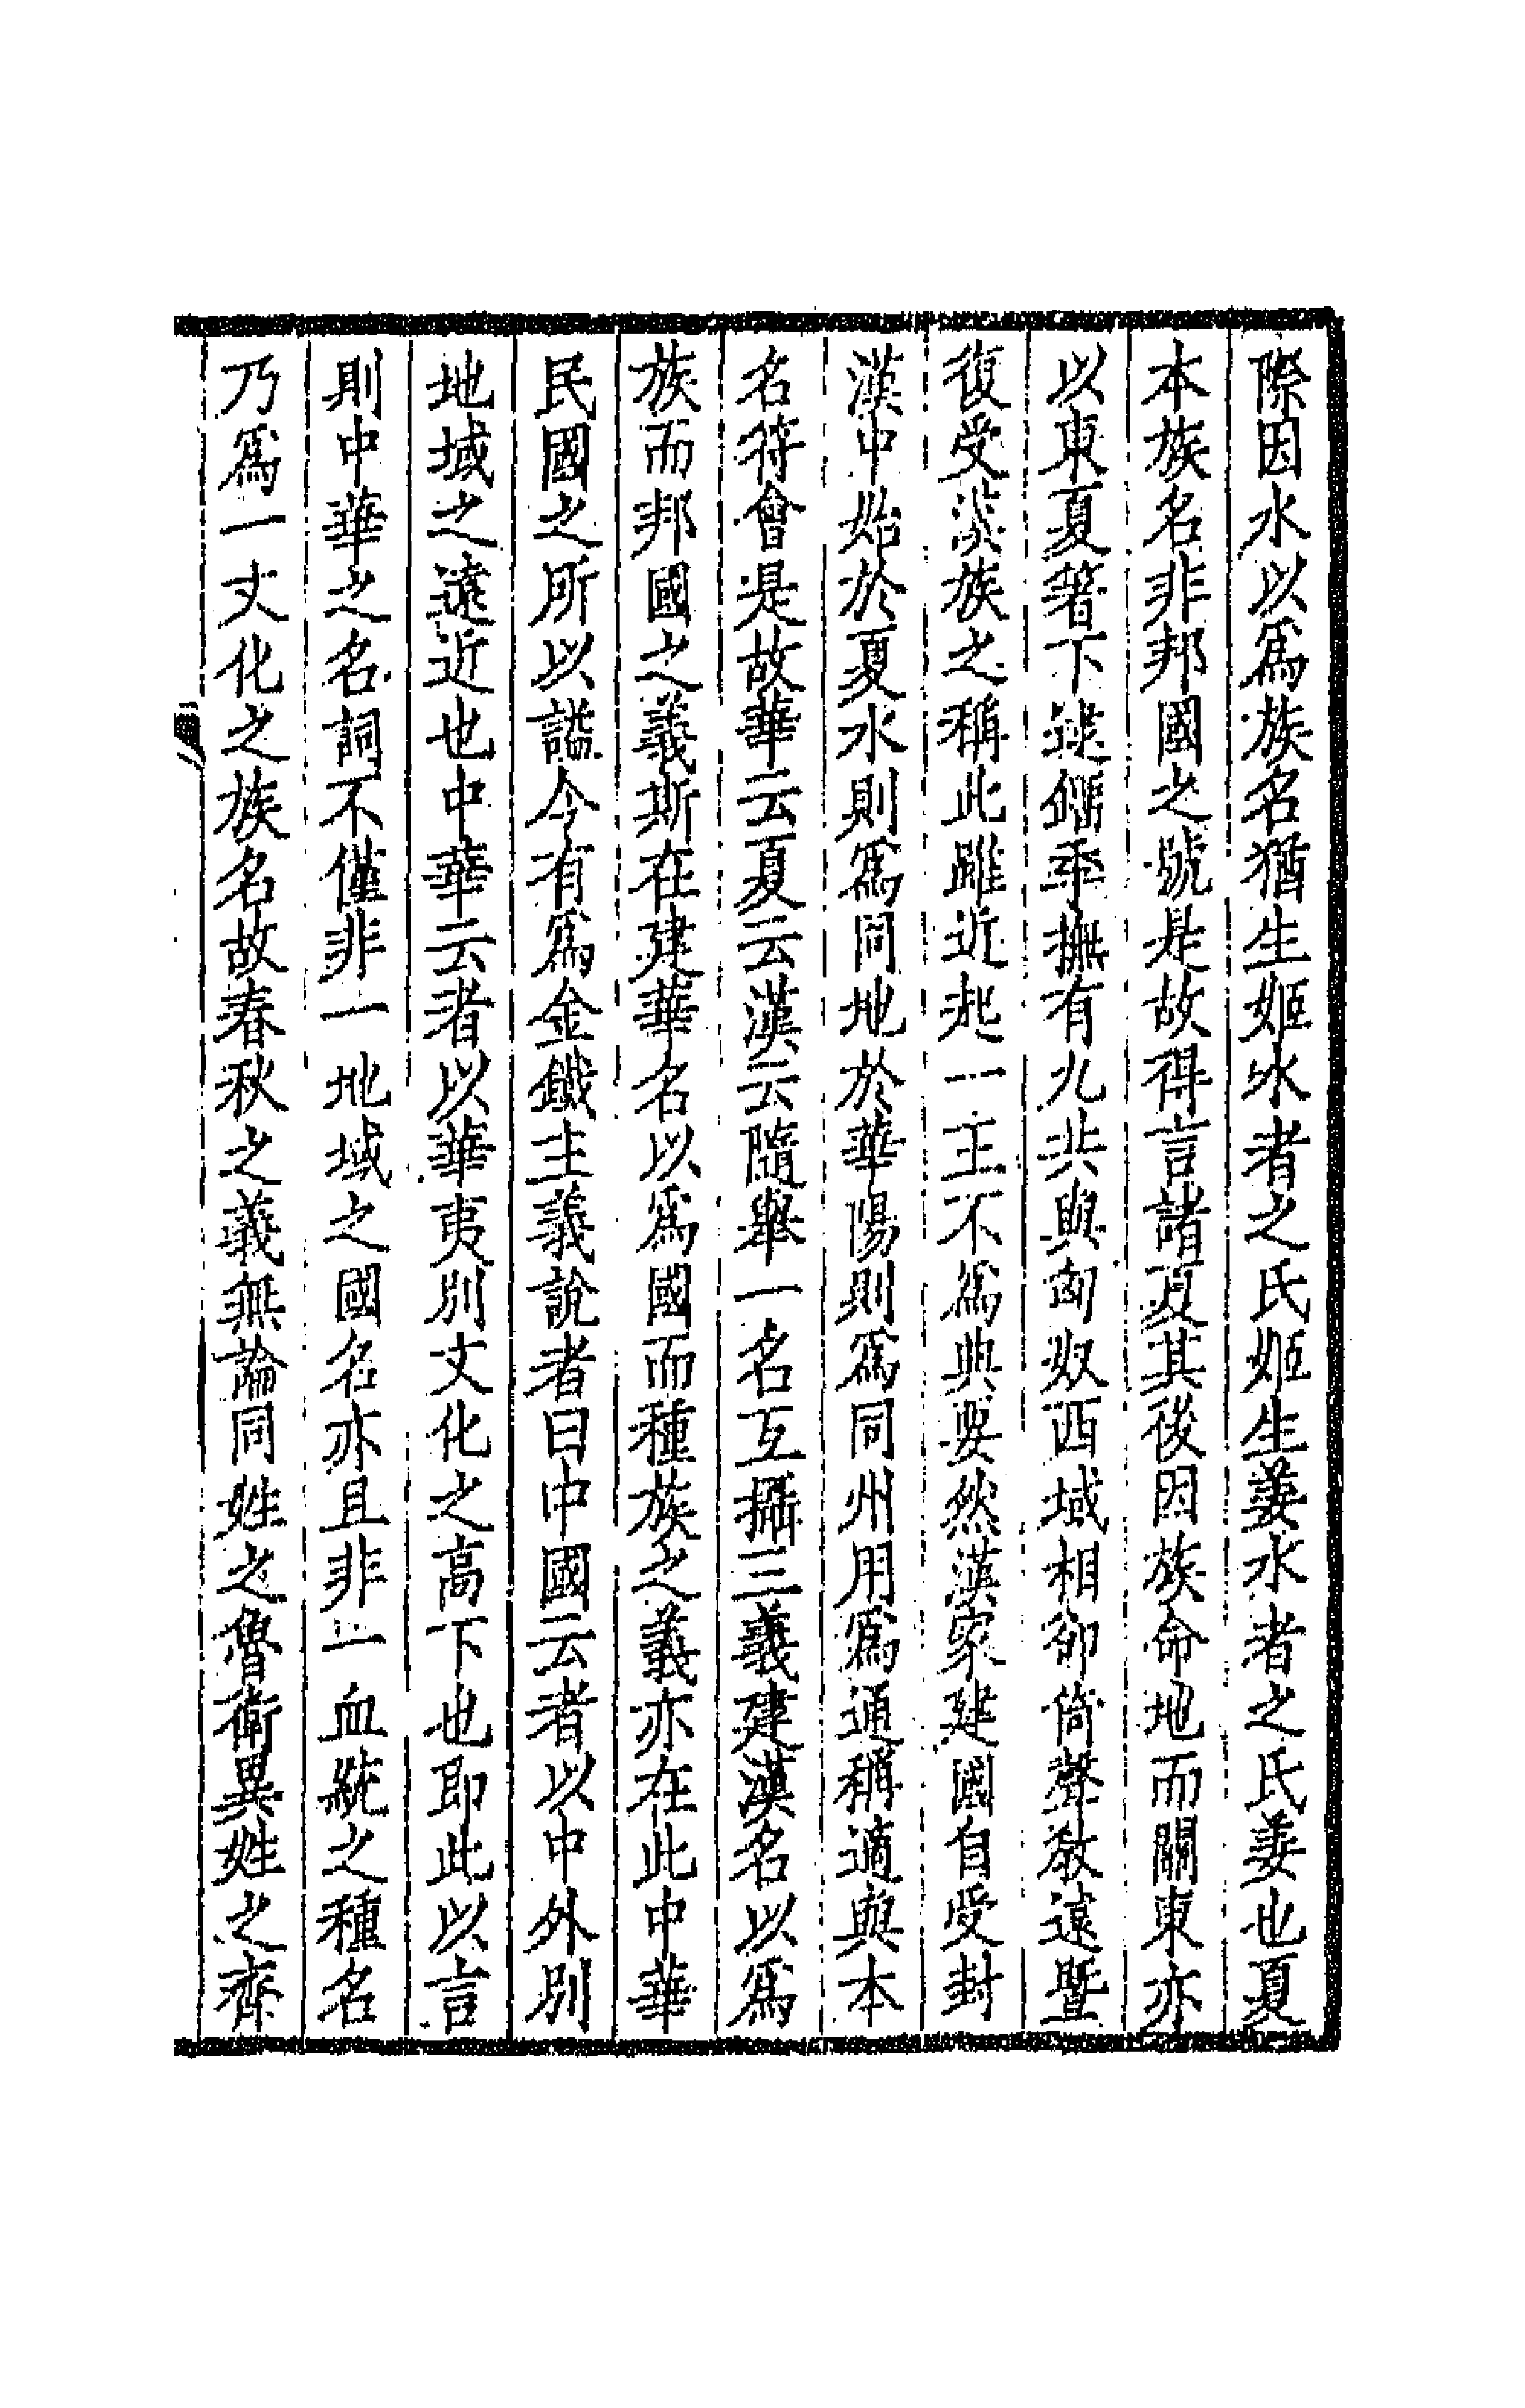 際因水以爲族名猶生姬水者之氏姬生姜水者之氏姜也夏
本族名非邦國之號是故得言諸夏其後因族命地而關東亦
以東夏箸下逮劉季撫有九共與匈奴西域相卻倚聲敎遠暨
復受漢族之稱此雖近起一王不爲典要然漢家建國自受封
漢中始於夏水則爲同地於華陽則爲同州用爲通稱適與本
名符會是故華云夏云漢云隨舉一名互攝三義建漢名以爲
族而邦國之義斯在建華名以爲國而種族之義亦在此中華
民國之所以謚今有爲金鐵主義說者曰中國云者以中外別
地域之遠近也中華云者以華夷別文化之高下也即此以言
則中華之名詞不僅非一地域之國名亦且非一血統之種名
乃爲一文化之族名故春秋之義無論同姓之魯衛異姓之齊